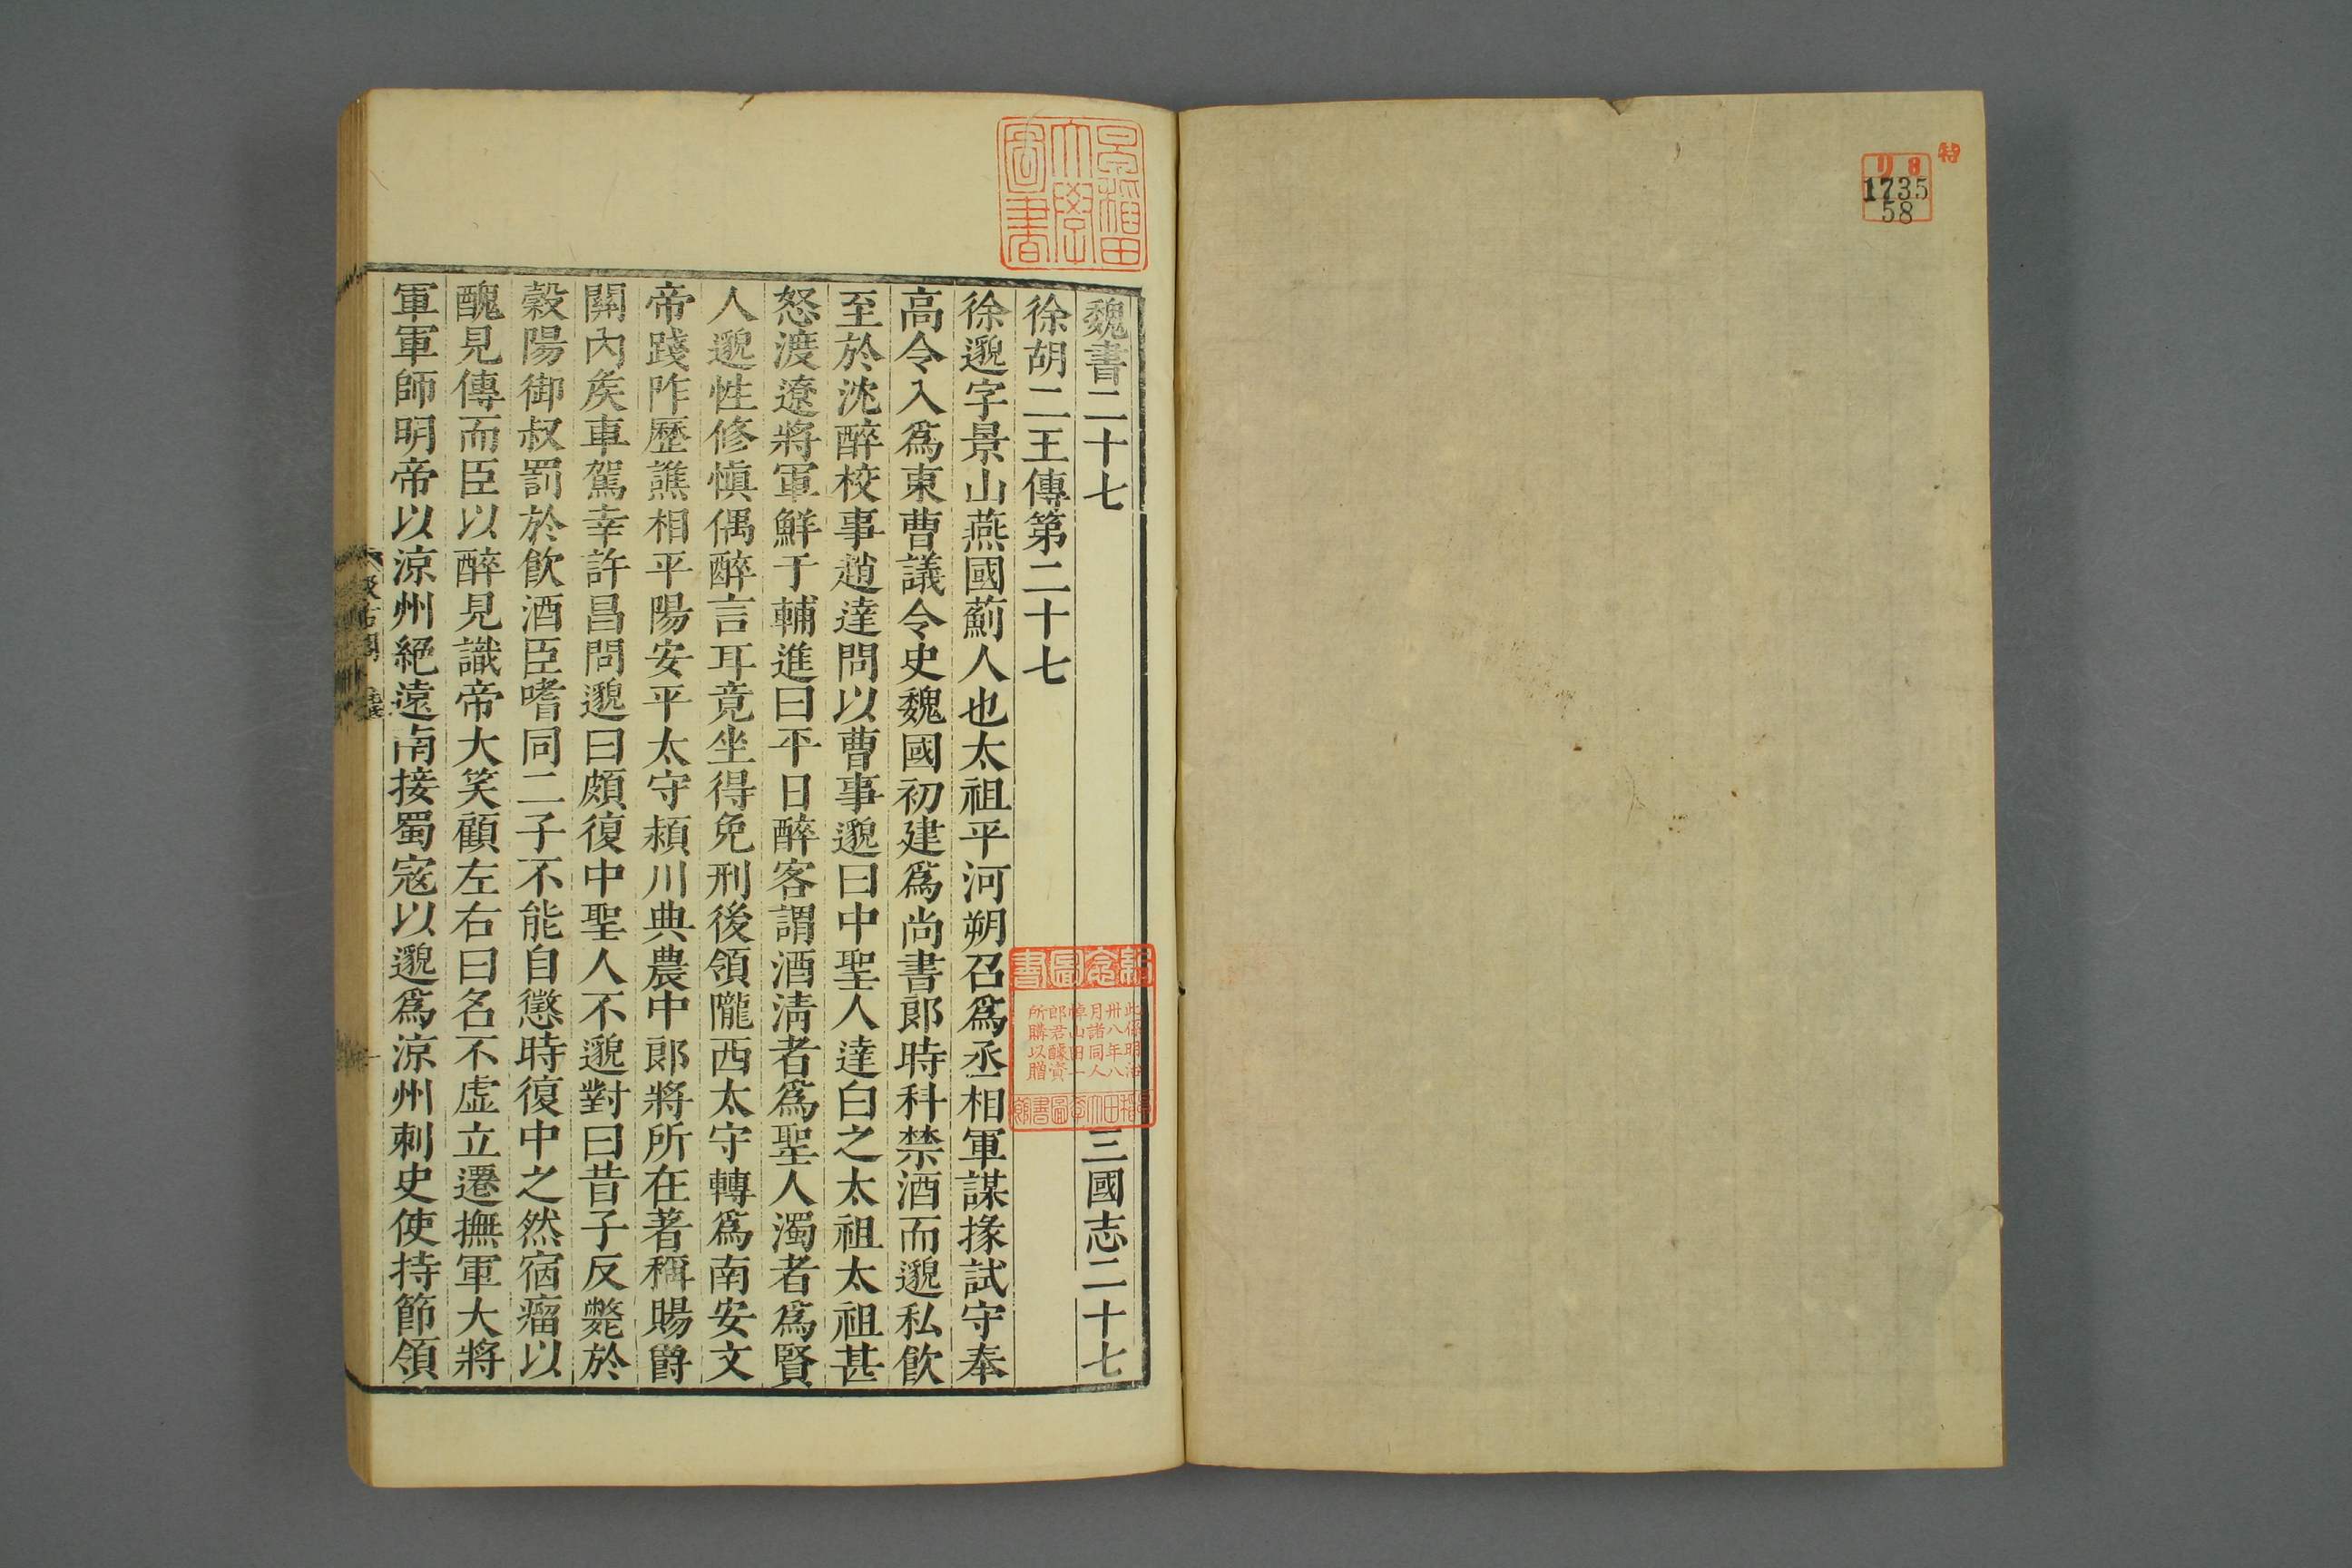 特
リ8
1735
58
早稲田
大學
圖書
魏書二十七 三國志二十七
徐胡二王傳第二十七
徐邈字景山燕國薊人也太祖平河朔召爲丞相軍謀掾試守奉
高令入爲東曹議令史魏國初建爲尚書郎時科禁酒而邈私飮
至於沈醉校事趙達問以曹事邈曰中聖人達白之太祖太祖甚
怒渡遼將軍鮮于輔進曰平日醉客謂酒淸者爲聖人濁者爲賢
人邈性修愼偶醉言耳竟坐得免刑後領隴西太守轉爲南安文
帝踐阼歷譙相平陽安平太守潁川典農中郎將所在著稱賜爵
關內矦車駕幸許昌問邈曰頗復中聖人不邈對曰昔子反斃於
穀陽御叔罰於飮酒臣嗜同二子不能自懲時復中之然宿瘤以
醜見傳而臣以醉見識帝大笑顧左右曰名不虛立遷撫軍大將
軍軍師明帝以涼州絕遠南接蜀寇以邈爲涼州刺史使持節領
紀念圖書
此係明治
卅八年八
月諸同人
悼山田一
郎君醵資
所購以贈
早稻田大學圖書館
汲古閣